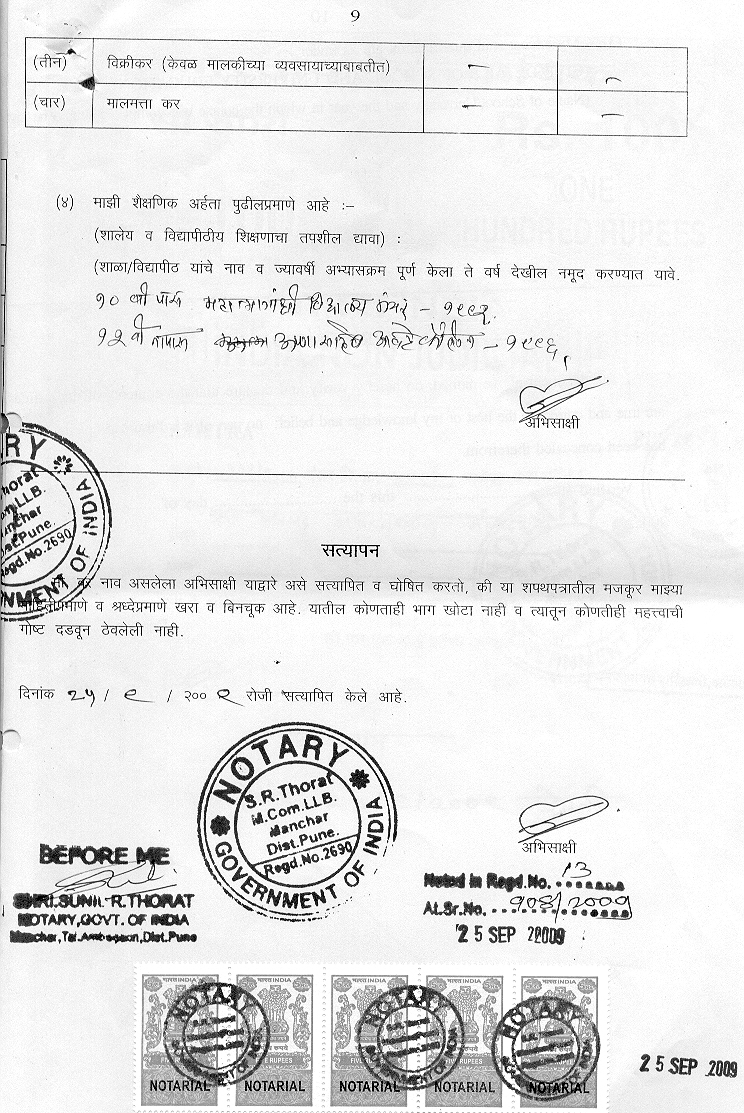 9
(तीन) विक्रीकर (केवळ मालकीच्या व्यवसायाच्याबाबतीत) – –
(चार) मालमत्ता कर – –
(४) माझी शैक्षणिक अर्हता पुढीलप्रमाणे आहे :–
(शालेय व विद्यापीठीय शिक्षणाचा तपशील द्यावा) :
(शाळा/विद्यापीठ यांचे नाव व ज्यावर्षी अभ्यासक्रम पूर्ण केला ते वर्ष देखील नमूद करण्यात यावे.
१० वी पास महात्मागांधी विद्यालय मंचर –
१२ वी नापास कॉलेज – १९९६
अभिसाक्षी
सत्यापन
वर नाव असलेला अभिसाक्षी याद्वारे असे सत्यापित व घोषित करतो, की या शपथपत्रातील मजकूर माझ्या
माहितीप्रमाणे व श्रध्देप्रमाणे खरा व बिनचूक आहे. यातील कोणताही भाग खोटा नाही व त्यातून कोणतीही महत्त्वाची
गोष्ट दडवून ठेवलेली नाही.
दिनांक २५ / ९ / २००९ रोजी सत्यापित केले आहे.
NOTARY
S.R.Thorat
M.Com.LLB.
Manchar
Dist.Pune.
Regd.No.2690
GOVERNMENT OF INDIA
अभिसाक्षी
BEFORE ME
SHRI.SUNIL R.THORAT
NOTARY,GOVT. OF INDIA
Manchar,Tal.Ambegaon,Dist.Pune
Noted in Regd.No. 13
At.Sr.No. 908/2009
25 SEP 2009
भारत INDIA भारत INDIA भारत INDIA भारत INDIA भारत INDIA
NOTARIAL NOTARIAL NOTARIAL NOTARIAL NOTARIAL
25 SEP 2009